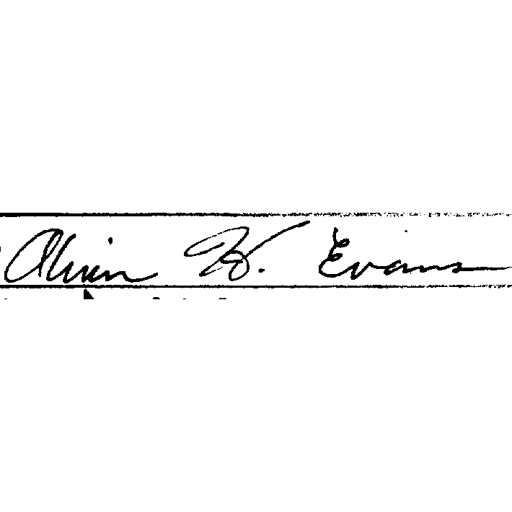 Alvin W. Evans